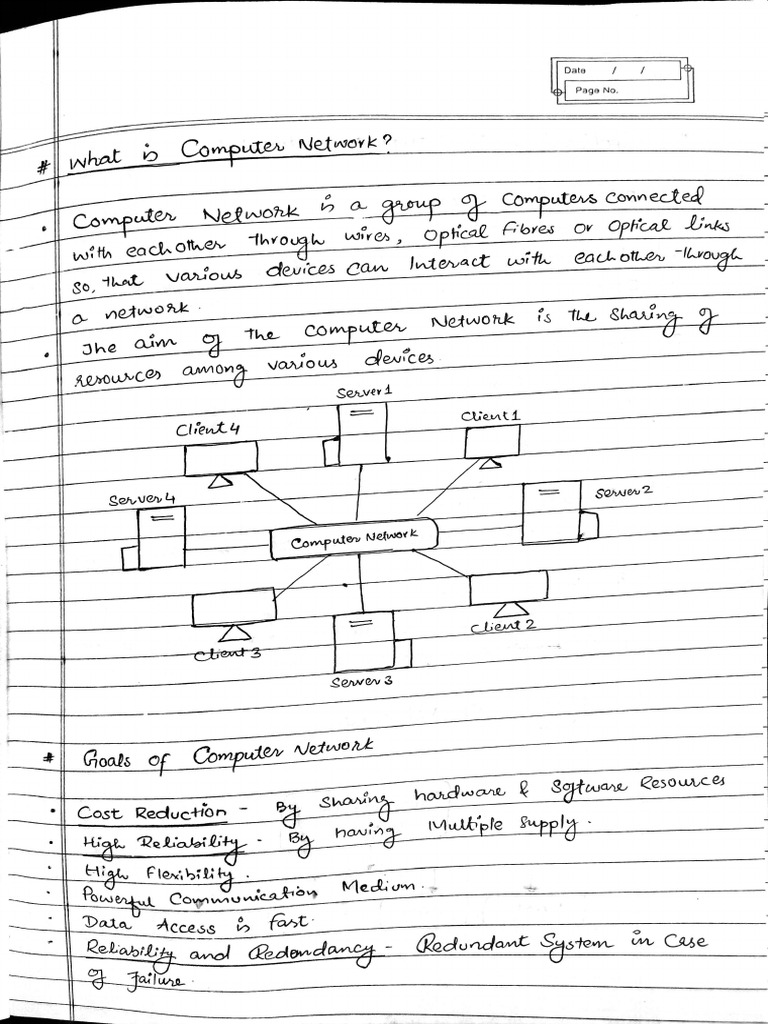 Date / /
Page No.
# What is Computer Network?
• Computer Network is a group of Computers connected
with each other through wires, Optical fibres or optical links
so, that various devices can Interact with each other through
a network.
• The aim of the computer Network is the sharing of
resources among various devices.
Server1
Client 4
Client 1
Server 4
Server 2
Computer Network
Client 3
Client 2
Server 3
# Goals of Computer Network
• Cost Reduction - By Sharing hardware & Software Resources
• High Reliability - By having Multiple Supply.
• High Flexibility.
• Powerful Communication Medium.
• Data Access is fast.
• Reliability and Redondancy - Redundant System in Case
of failure.